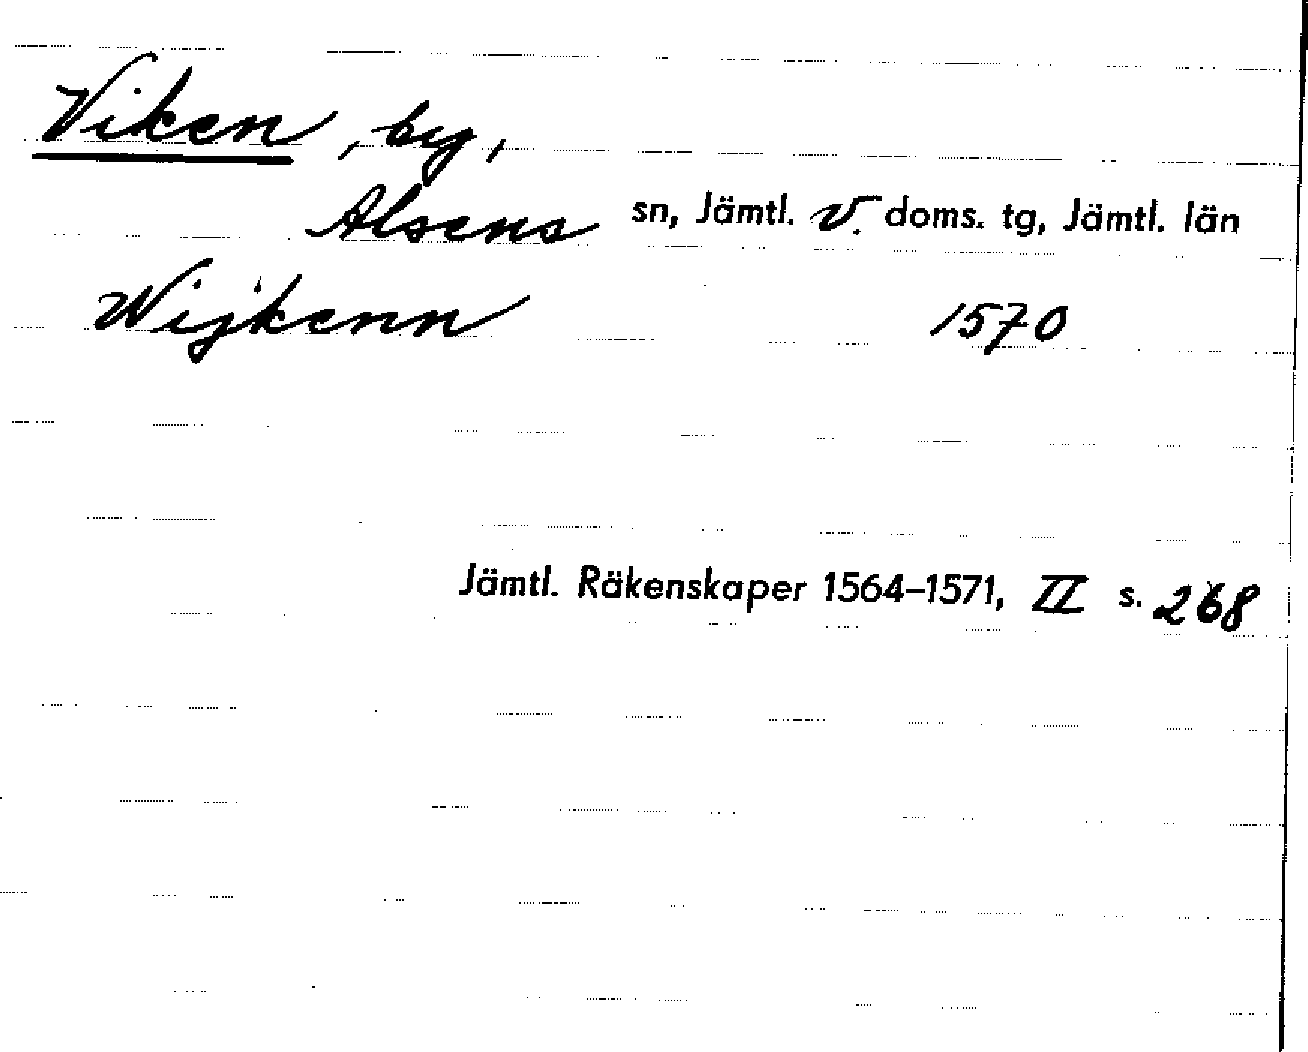 Viken, by,
Alsens sn, Jämtl. V. doms. tg, Jämtl. län
Wijkenn 1570
Jämtl. Räkenskaper 1564–1571, II s. 268